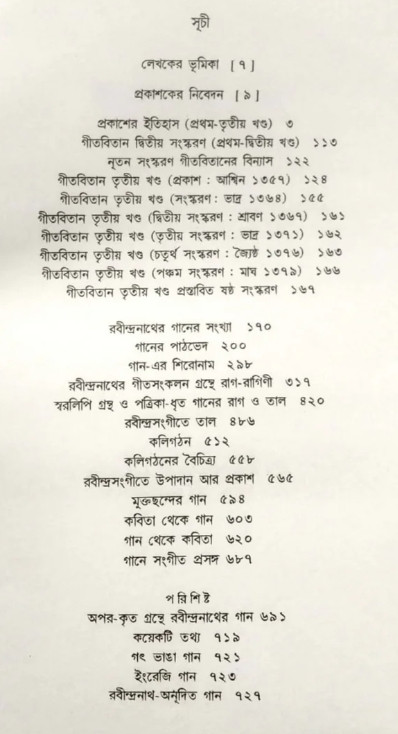 সূচী
লেখকের ভূমিকা [ ৭ ]
প্রকাশকের নিবেদন [ ৯ ]
প্রকাশের ইতিহাস (প্রথম-তৃতীয় খণ্ড) ৩
গীতবিতান দ্বিতীয় সংস্করণ (প্রথম-দ্বিতীয় খণ্ড) ১১৩
নূতন সংস্করণ গীতবিতানের বিন্যাস ১২২
গীতবিতান তৃতীয় খণ্ড (প্রকাশ : আশ্বিন ১৩৫৭) ১২৪
গীতবিতান তৃতীয় খণ্ড (সংস্করণ : ভাদ্র ১৩৬৪) ১৫৫
গীতবিতান তৃতীয় খণ্ড (দ্বিতীয় সংস্করণ : শ্রাবণ ১৩৬৭) ১৬১
গীতবিতান তৃতীয় খণ্ড (তৃতীয় সংস্করণ : ভাদ্র ১৩৭১) ১৬২
গীতবিতান তৃতীয় খণ্ড (চতুর্থ সংস্করণ : জ্যৈষ্ঠ ১৩৭৬) ১৬৩
গীতবিতান তৃতীয় খণ্ড (পঞ্চম সংস্করণ : মাঘ ১৩৭৯) ১৬৬
গীতবিতান তৃতীয় খণ্ড প্রস্তাবিত ষষ্ঠ সংস্করণ ১৬৭
রবীন্দ্রনাথের গানের সংখ্যা ১৭০
গানের পাঠভেদ ২০০
গান-এর শিরোনাম ২৯৮
রবীন্দ্রনাথের গীতসংকলন গ্রন্থে রাগ-রাগিণী ৩১৭
স্বরলিপি গ্রন্থ ও পত্রিকা-ধৃত গানের রাগ ও তাল ৪২০
রবীন্দ্রসংগীতে তাল ৪৮৬
কলিগঠন ৫১২
কলিগঠনের বৈচিত্র্য ৫৫৮
রবীন্দ্রসংগীতে উপাদান আর প্রকাশ ৫৬৫
মুক্তছন্দের গান ৫৯৪
কবিতা থেকে গান ৬০৩
গান থেকে কবিতা ৬২০
গানে সংগীত প্রসঙ্গ ৬৮৭
পরিশিষ্ট
অপর-কৃত গ্রন্থে রবীন্দ্রনাথের গান ৬৯১
কয়েকটি তথ্য ৭১৯
গৎ ভাঙা গান ৭২১
ইংরেজি গান ৭২৩
রবীন্দ্রনাথ-অনূদিত গান ৭২৭